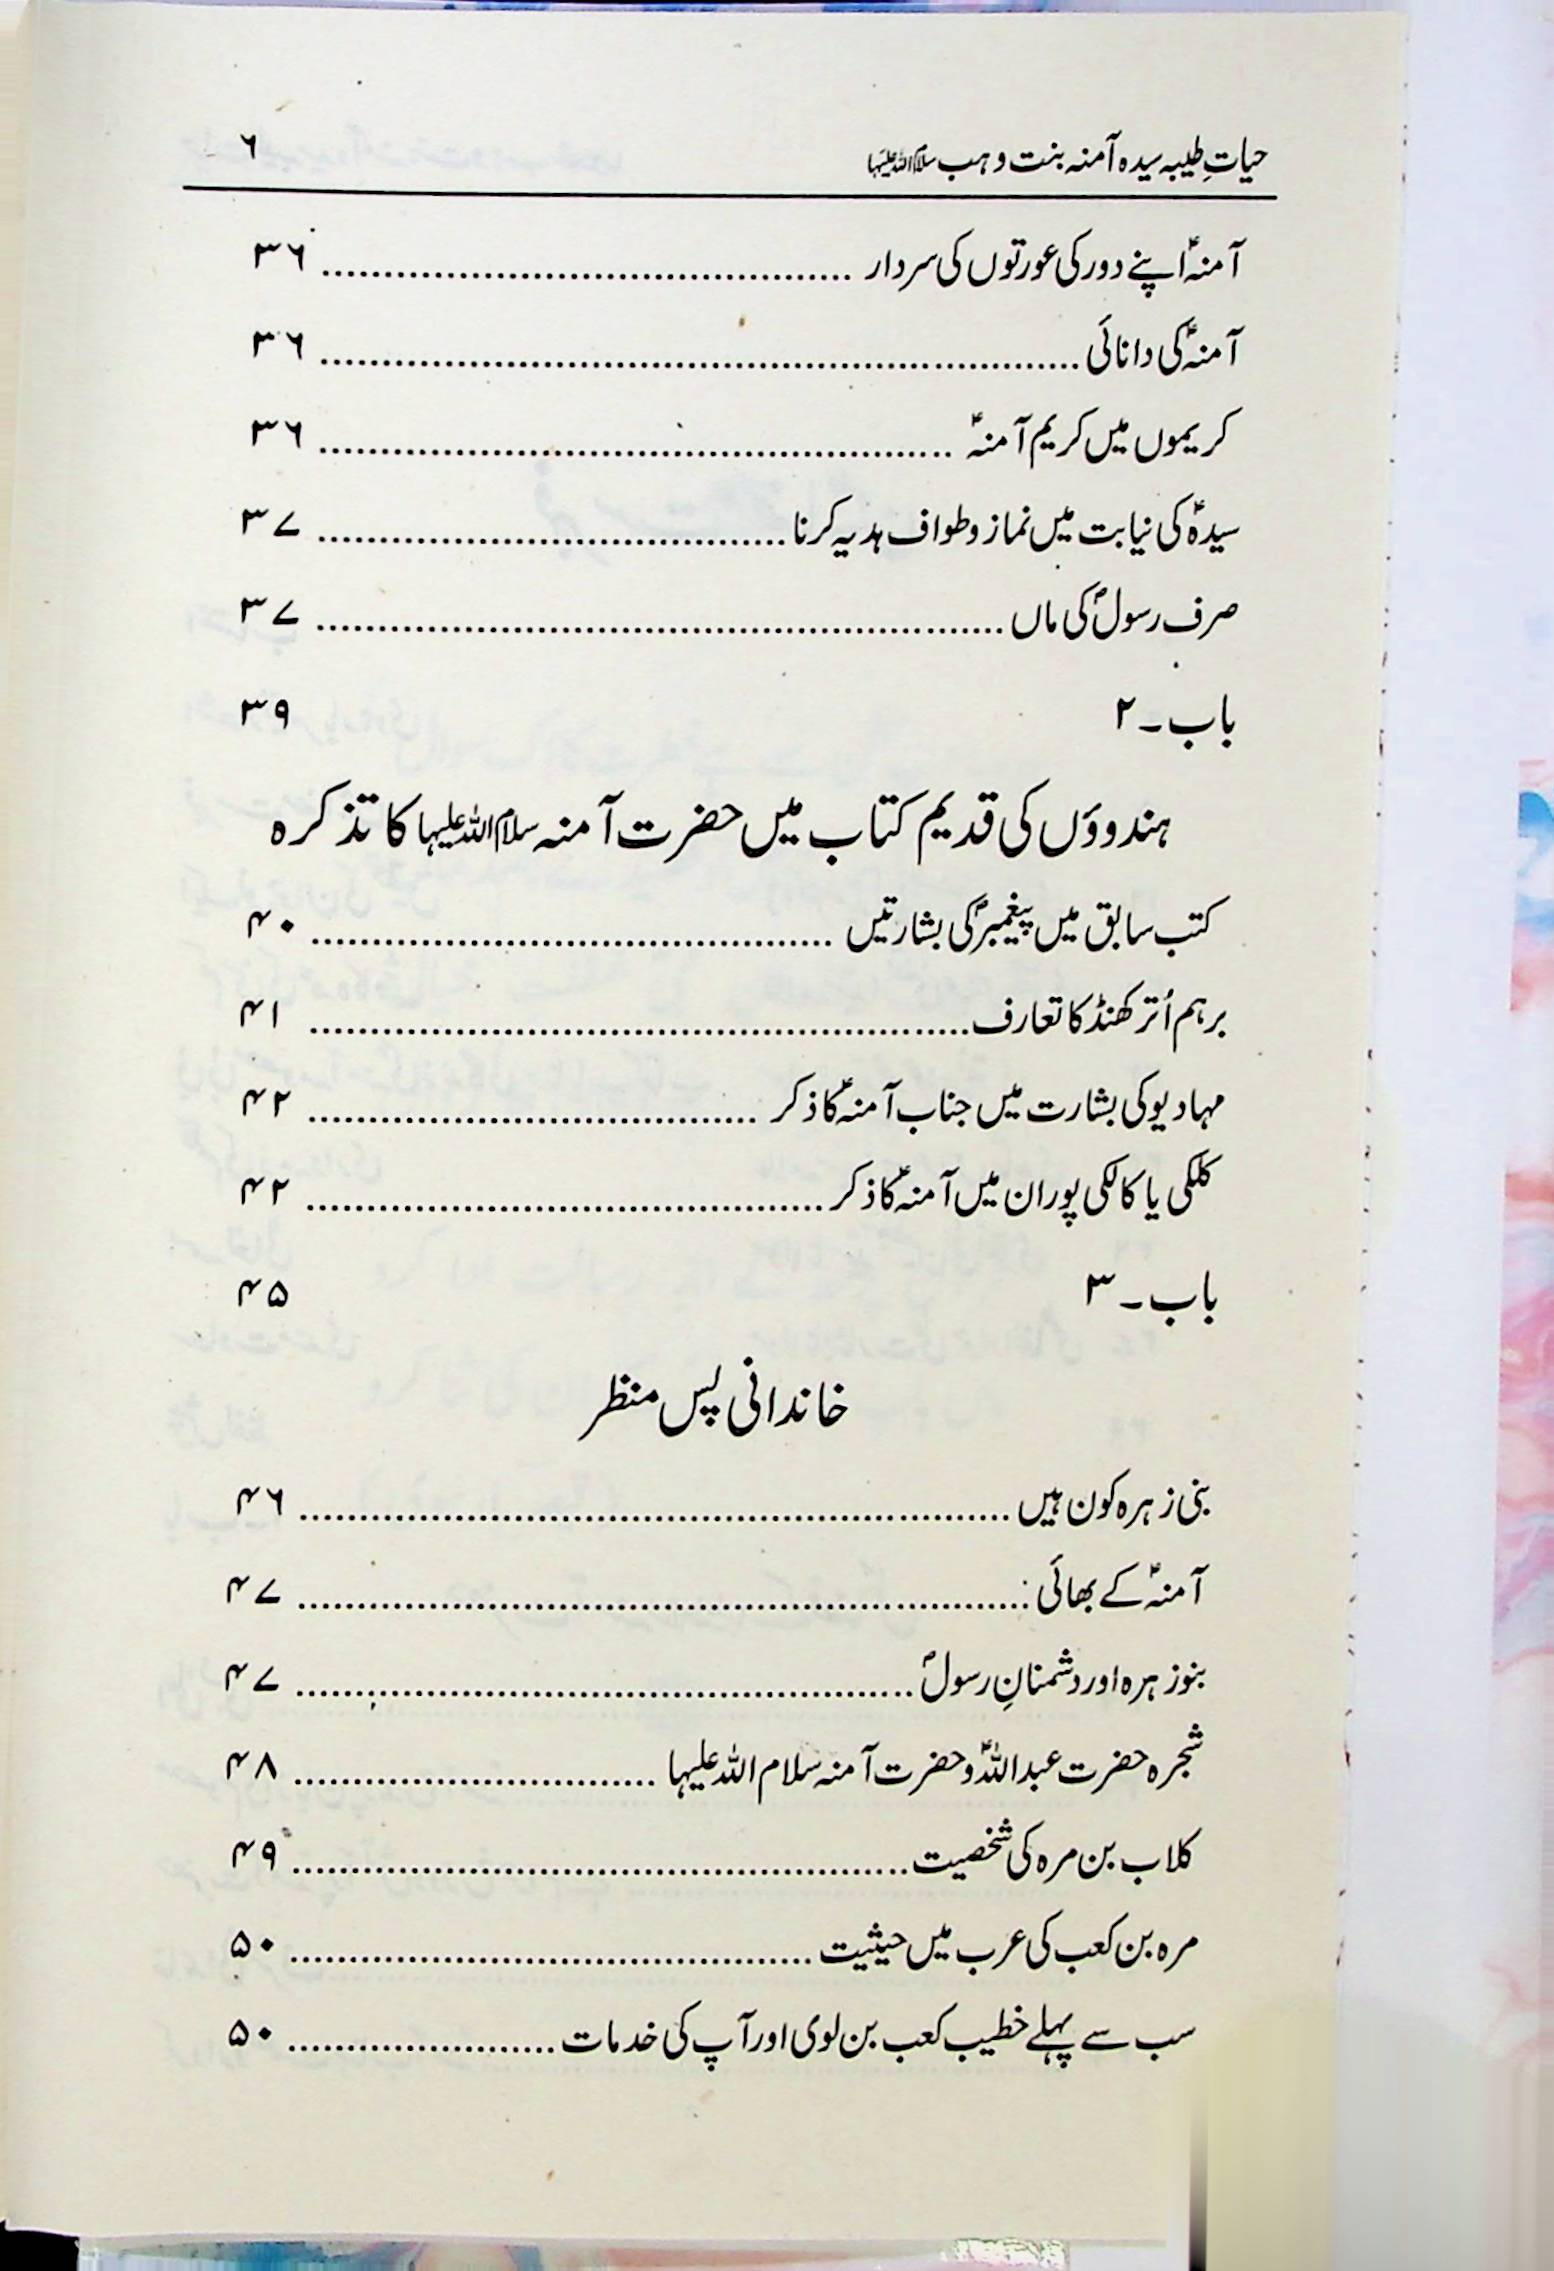 حیاتِ طیبہ سیدہ آمنہ بنت وہب سلام اللہ علیہا ۶
آمنہؑ اپنے دور کی عورتوں کی سردار ........................................ ۳۶
آمنہؑ کی دانائی ........................................ ۳۶
کریموں میں کریم آمنہؑ ........................................ ۳۶
سیدہؑ کی نیابت میں نماز و طواف ہدیہ کرنا ........................................ ۳۷
صرف رسولؐ کی ماں ........................................ ۳۷
باب ۔ ۲ ۳۹
ہندوؤں کی قدیم کتاب میں حضرت آمنہ سلام اللہ علیہا کا تذکرہ
کتب سابق میں پیغمبرؐ کی بشارتیں ........................................ ۴۰
برہم اُتر کھنڈ کا تعارف ........................................ ۴۱
مہادیو کی بشارت میں جناب آمنہؑ کا ذکر ........................................ ۴۲
کلکی یا کالکی پوران میں آمنہؑ کا ذکر ........................................ ۴۲
باب ۔ ۳ ۴۵
خاندانی پس منظر
بنی زہرہ کون ہیں ........................................ ۴۶
آمنہؑ کے بھائی ........................................ ۴۷
بنو زہرہ اور دشمنانِ رسولؐ ........................................ ۴۷
شجرہ حضرت عبداللہؑ و حضرت آمنہ سلام اللہ علیہا ........................................ ۴۸
کلاب بن مرہ کی شخصیت ........................................ ۴۹
مرہ بن کعب کی عرب میں حیثیت ........................................ ۵۰
سب سے پہلے خطیب کعب بن لوی اور آپ کی خدمات ........................................ ۵۰